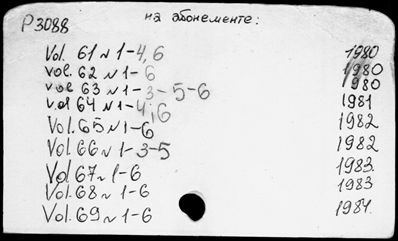 P3088 на абонементе:
Vol. 61 N 1-4,6 1980
vol. 62 N 1-6 1980
vol 63 N 1-3-5-6 1980
vol 64 N 1-4,6 1981
Vol. 65 N 1-6 1982
Vol. 66 N 1-3-5 1982
Vol. 67 N 1-6 1983.
Vol. 68 N 1-6 1983
Vol. 69 N 1-6 1984.